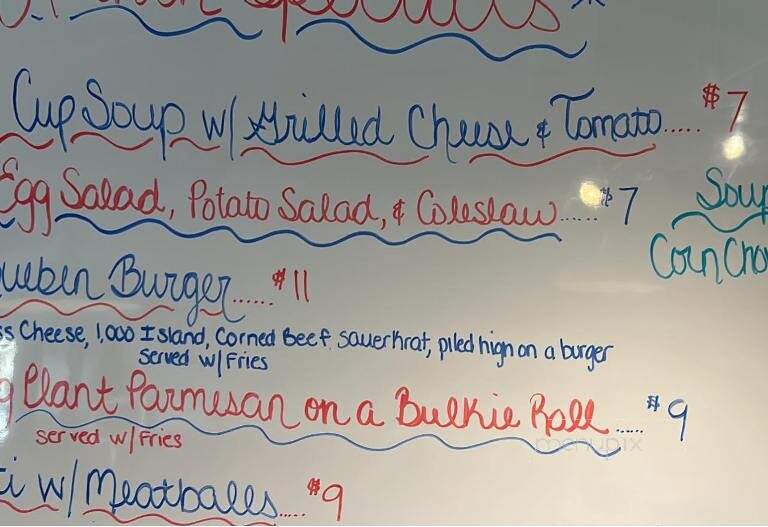 Specials
Cup Soup w/ Grilled Cheese & Tomato..... $7
Egg Salad, Potato Salad, & Coleslaw...... $7
Soup
Corn Cho
ueben Burger...... $11
ss Cheese, 1,000 Island, Corned Beef Sauerkrat, piled high on a burger
served w/ Fries
g Plant Parmesan on a Bulkie Roll...... $9
served w/ Fries
menupix
i w/ Meatballs..... $9